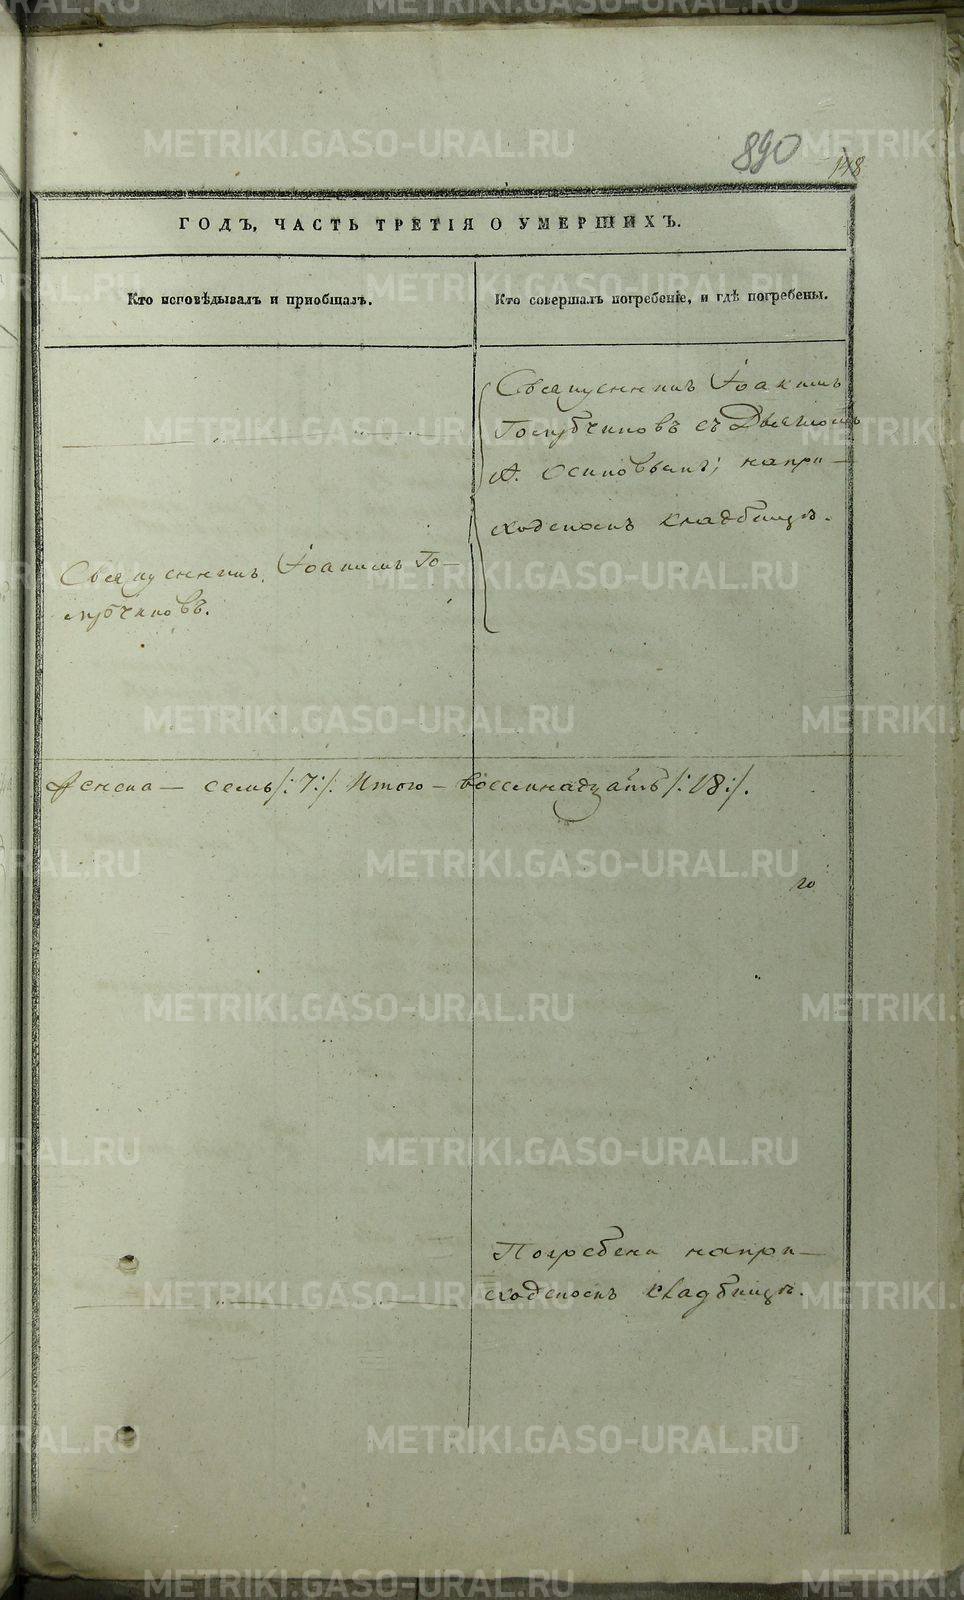 890
148
ГОДЪ, ЧАСТЬ ТРЕТІЯ О УМЕРШИХЪ.
Кто исповѣдывалъ и приобщалъ.
Кто совершалъ погребеніе, и гдѣ погребены.
Священникъ Іоакимъ
Голубчиковъ съ Дьячкомъ
А. Осиповымъ; на при-
ходскомъ кладбищѣ.
Священникъ Іоакимъ Го-
лубчиковъ.
Женска — семь /:7:/. Итого — восемнадцать /:18:/.
го
Погребена на при-
ходскомъ кладбищѣ.
METRIKI.GASO-URAL.RU